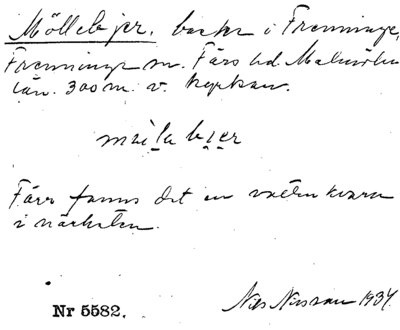 Möllebjer. backe i Frenninge,
Frenninge sn. Färs hd Malmöhus
län. 300 m. v. kyrkan.
Förr fanns det en vattenkvarn
i närheten.
Nr 5582. Nils Nilsson 1934